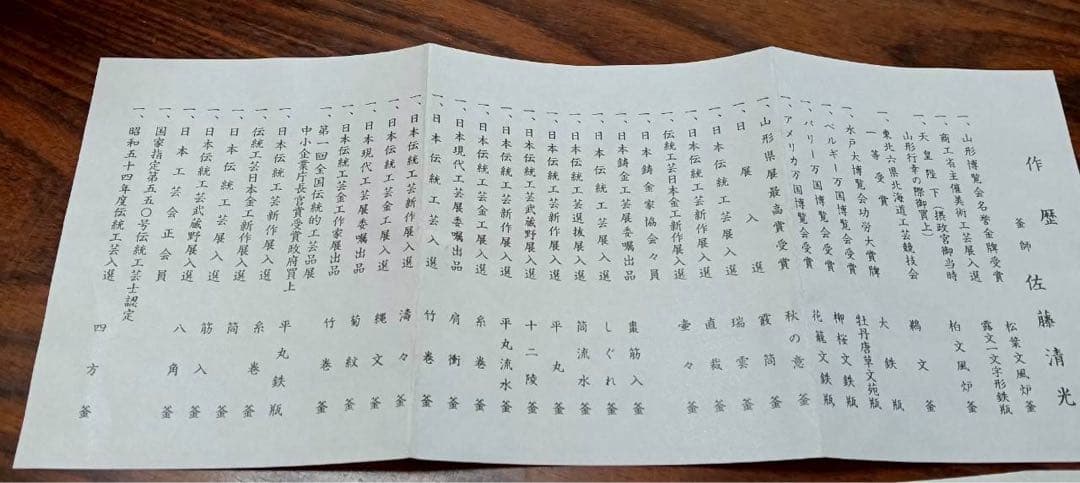 作歴
釜師 佐藤清光
一、山形博覧会名誉金牌受賞 松葉文風炉釜
一、商工省主催美術工芸展入選 露文一文字形鉄瓶
一、天皇陛下(摂政宮御当時)
山形行幸の際御買上 柏文風炉釜
一、東北六県北海道工芸競技会
一等受賞 鵜文釜
一、水戸大博覧会功労大賞牌 大鉄瓶
一、ベルギー万国博覧会受賞 牡丹唐草文苑瓶
一、パリー万国博覧会受賞 柳桜文鉄瓶
一、アメリカ万国博覧会受賞 花籠文鉄瓶
一、山形県展最高賞受賞 秋の意釜
一、日展入選 霞筒釜
一、日本伝統工芸入選 瑞雲釜
一、伝統工芸日本金工新作展入選 直裁釜
一、日本鋳金家協会々員 壷々釜
一、日本鋳金工芸展委嘱出品 棗筋入釜
一、日本伝統工芸展入選 しぐれ釜
一、日本伝統工芸選抜展入選 筒流水釜
一、日本伝統工芸新作展入選 平丸釜
一、日本伝統工芸武蔵野展入選 十二陵釜
一、日本伝統工芸金工新作展入選 平丸流水釜
一、日本現代工芸展委嘱出品 糸巻釜
一、日本伝統工芸入選 肩衝釜
一、日本伝統工芸新作展入選 竹巻釜
一、日本現代工芸展委嘱出品 濤々釜
一、日本伝統工芸金工作家展出品 縄文釜
一、第一回全国伝統的工芸品展 菊紋釜
中小企業庁長官賞受賞政府買上 竹巻釜
一、日本伝統工芸新作展入選 平丸鉄瓶
一、伝統工芸日本金工新作展入選 糸巻釜
一、日本伝統工芸入選 筒釜
一、日本伝統工芸武蔵野展入選 筋入釜
一、日本工芸会正会員 八角釜
一、国家指定第五五〇号伝統工芸士認定
一、昭和五十四年度伝統工芸入選 四方釜